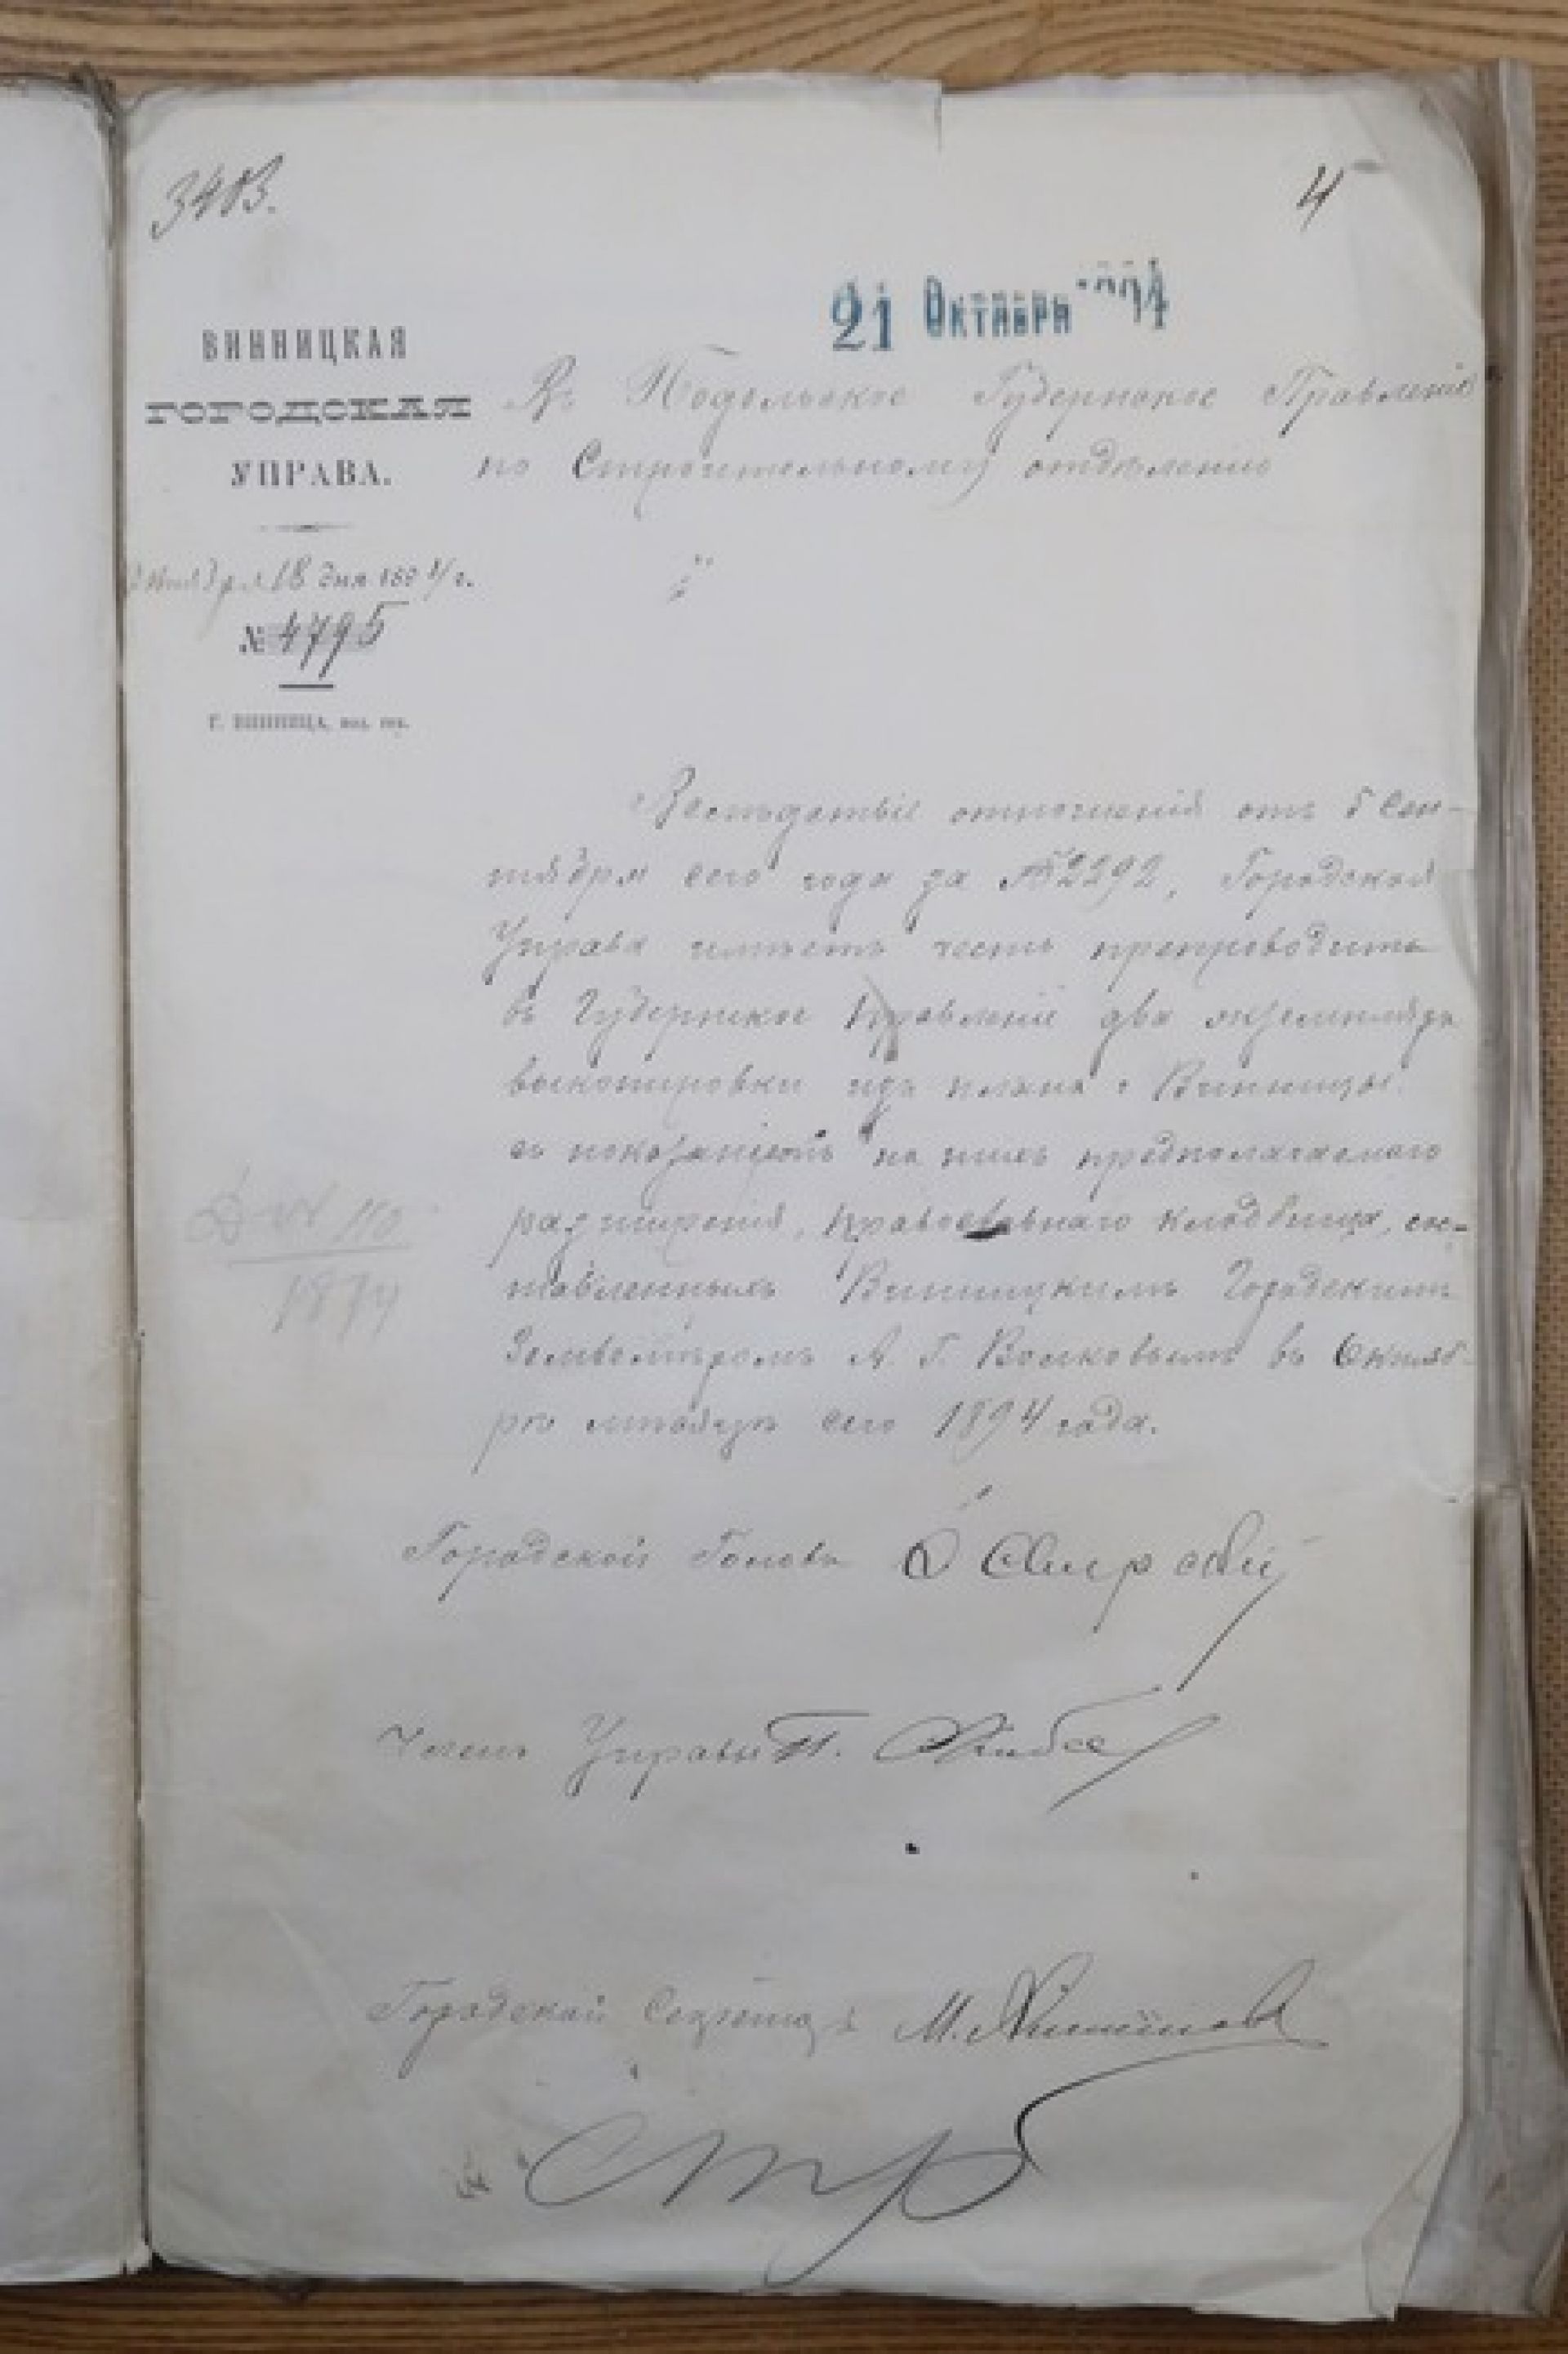 3403.
4
21 Октября 1894
ВИННИЦКАЯ
ГОРОДСКАЯ
УПРАВА.
Октября 18 дня 1894 г.
№ 4795
Г. ВИННИЦА, под. губ.
Въ Подольское Губернское Правленіе
по Строительному отдѣленію
Вслѣдствіе отношенія отъ 5 Сен-
тября сего года за № 2292, Городская
Управа имѣетъ честь препроводить
въ Губернское Правленіе два экземпляра
выкопировки изъ плана г. Винницы
съ показаніемъ на нихъ предполагаемаго
разширенія, православнаго кладбища, сос-
тавленныхъ Винницкимъ Городскимъ
Землемѣромъ А. Г. Волковымъ въ Октяб-
рѣ мѣсяцѣ сего 1894 года.
Д № 110
Городской Голова
Членъ Управы П.
Городской Секретарь М.